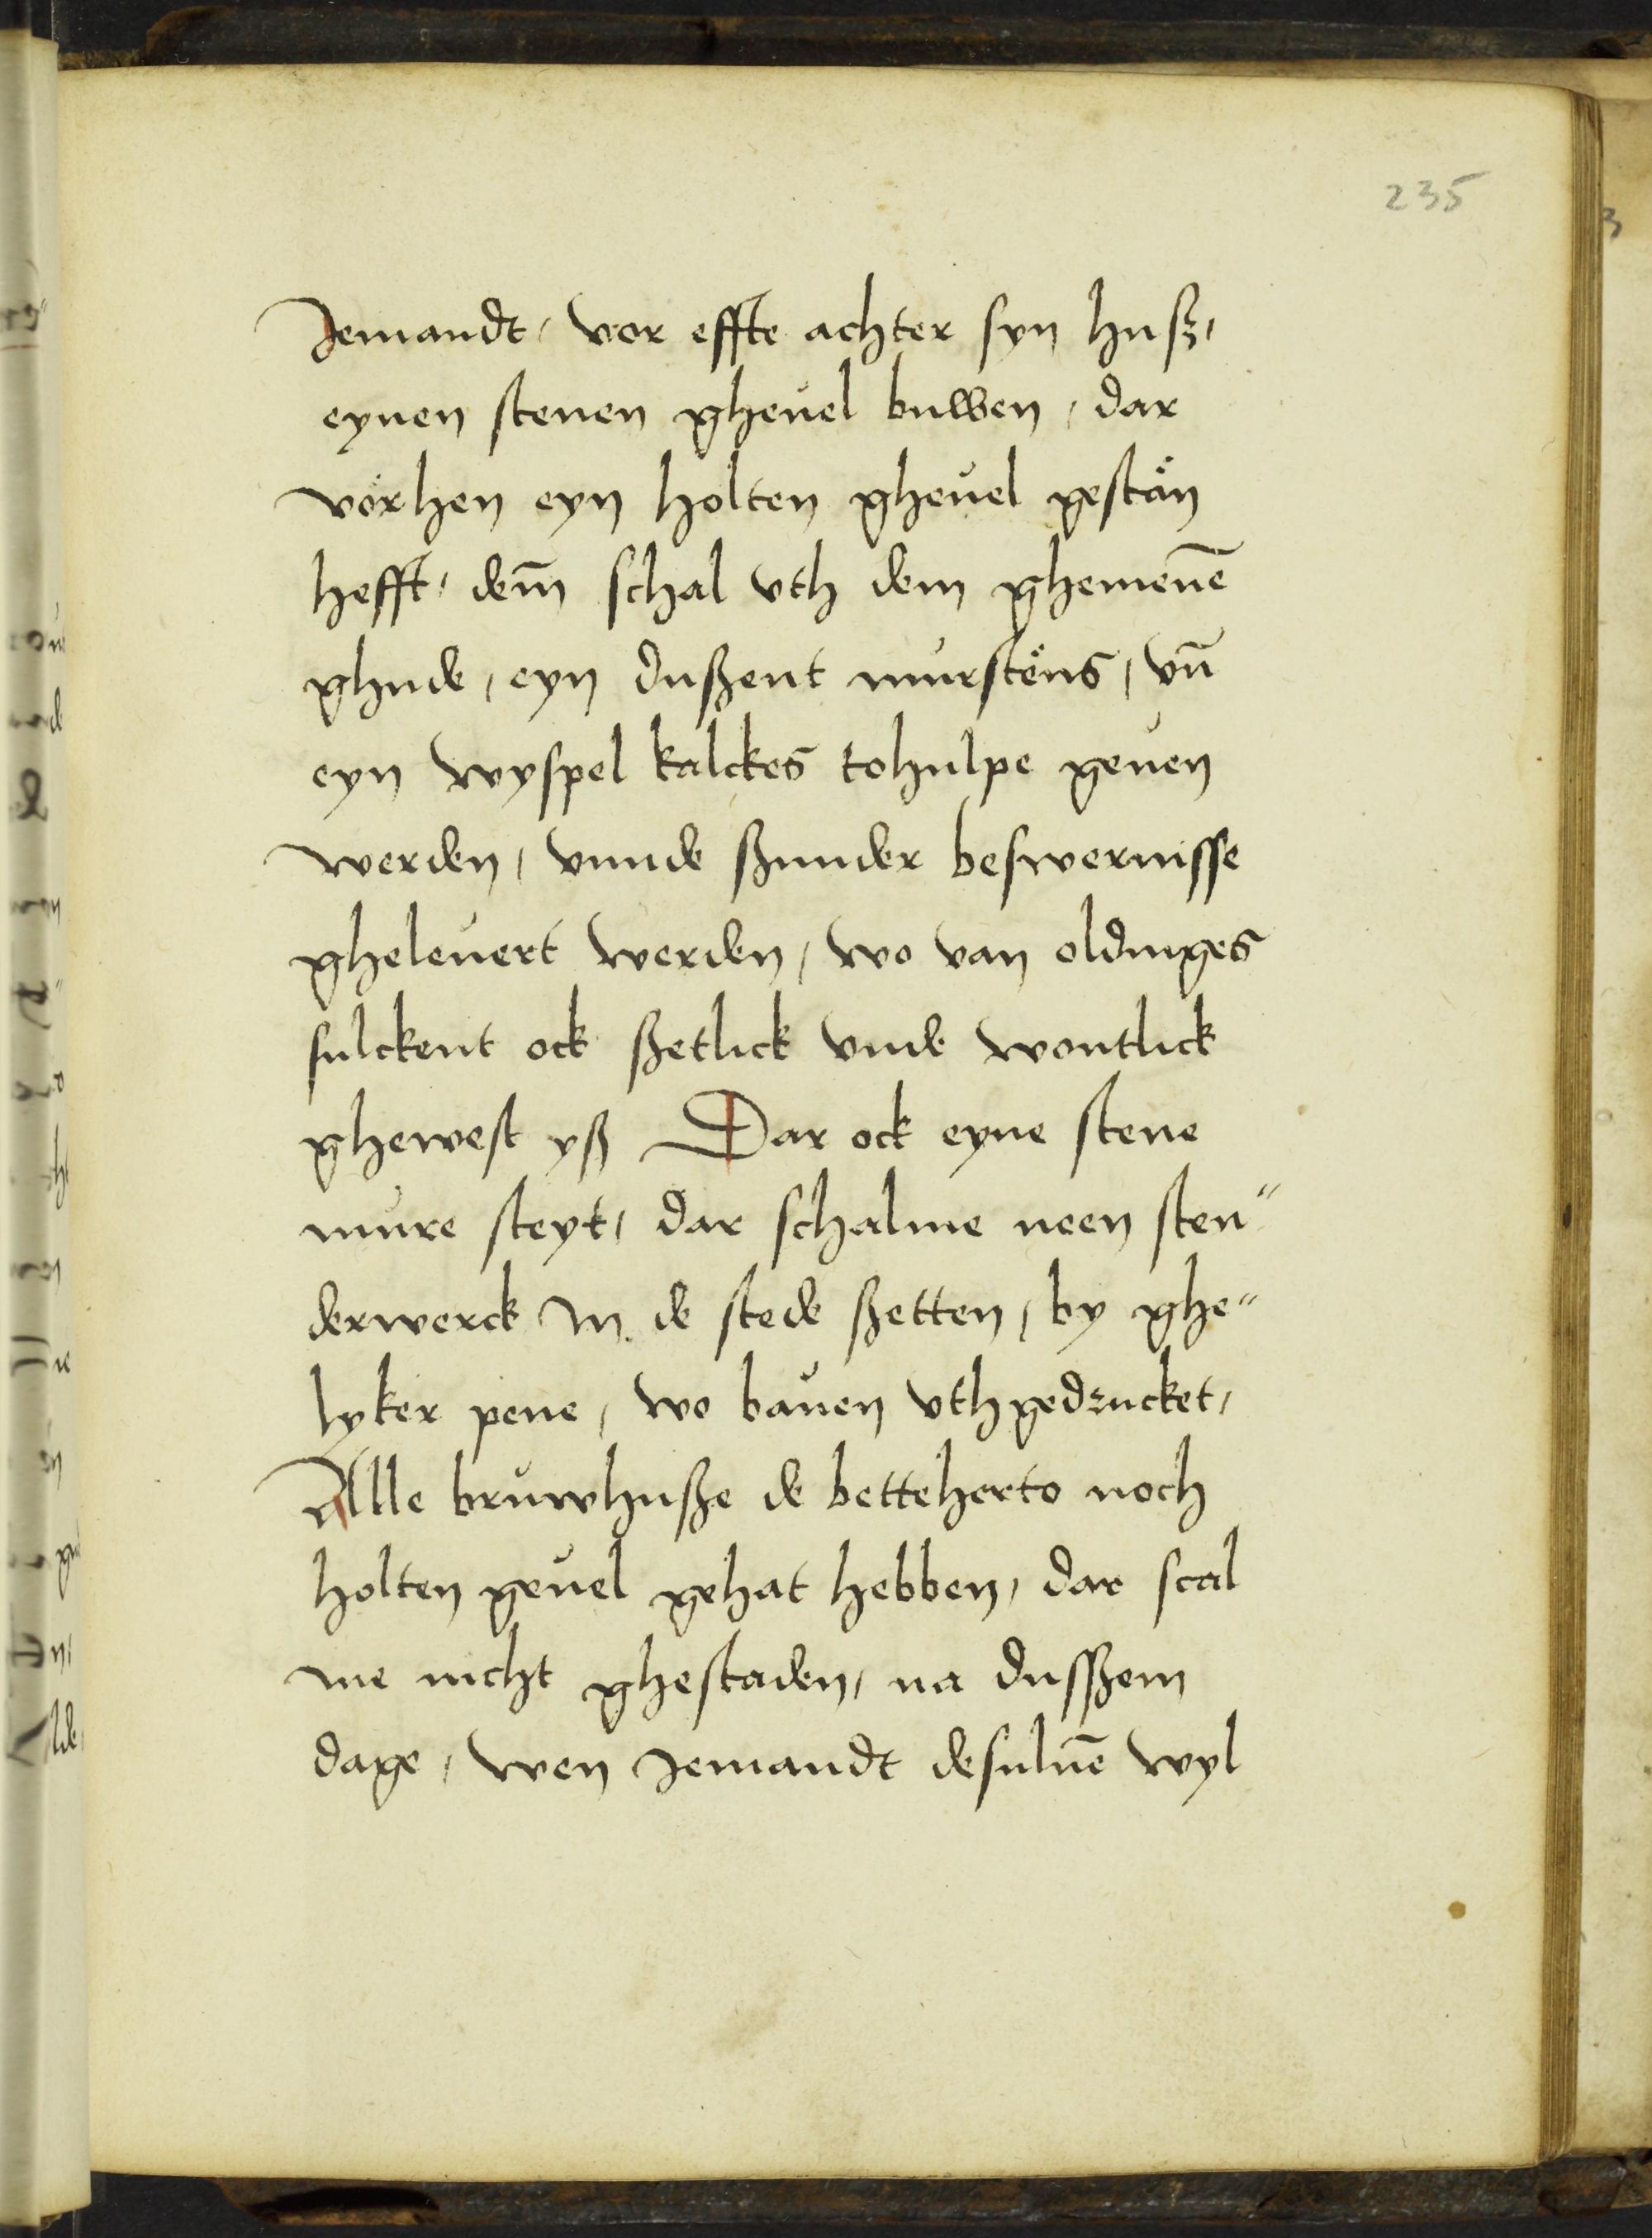 235
Jemandt / vor effte achter syn huß /
eynen stenen gheuel buwen / dar
vörhen eyn holten gheuel gestän
hefft / dem̄ schal vth dem ghemenē
ghude / eyn dußent murstëns / vn̄
eyn wyspel kalckes tohulpe geuen
werden / vnnde ßunder beswernisse
gheleuert werden / wo van oldinges
sulckent ock ßetlick vnde wontlick
ghewest yß Dar ock eyne stene
mure steyt / dar schalme neen sten"
derwerck in de stede ßetten / by ghe"
lyker pene / wo bauen vthgedrucket /
Alle bruwhuße de betteherto noch
holten geuel gehat hebben / dar scal
me nicht ghestaden / na dusßem
dage / wen Jemandt desuluē wyl